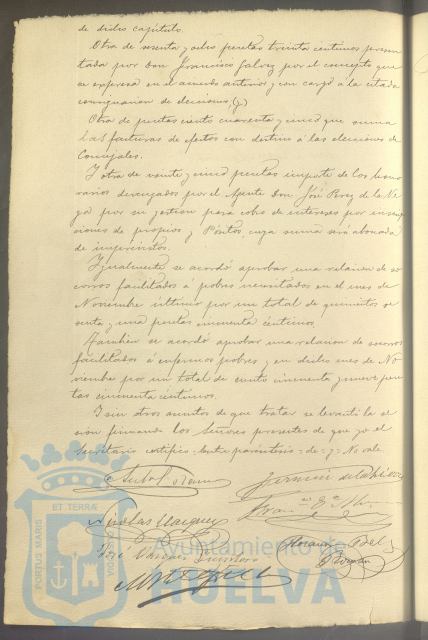 de dicho capítulo.
Otra de sesenta y ocho pesetas treinta centimos presen
tada por Don Francisco Galvez por el concepto que
se expresa en el acuerdo anterior y con cargo á la citada
consignacion de elecciones, (y)
Otra de pesetas ciento cuarenta y cinco que suma
las facturas de efectos con destino á las elecciones de
Concejales.
Y otra de veinte y cinco pesetas importe de los hono
rarios devengados por el Agente Don José Perez de la Ve
ga por su gestion para cobro de intereses por inscrip
ciones de propios y Pósitos, cuya suma será abonada
de imprevistos.
Igualmente se acordó aprobar una relacion de so
corros facilitados á pobres necesitados en el mes de
Noviembre último por un total de quinientos se
senta y una pesetas cincuenta céntimos.
Tambien se acordó aprobar una relacion de socorros
facilitados á enfermos pobres, en dicho mes de No
viembre por un total de ciento cincuenta y nueve pese
tas cincuenta céntimos.
Y sin otros asuntos de que tratar se levantó la se
sion firmando los Señores presentes de que yo el
Secretario certifico. Entre paréntesis = de = y = No vale
Nicolas Vazquez
José
ET TERRA
PORTUS MARIS
Ayuntamiento de
HUELVA